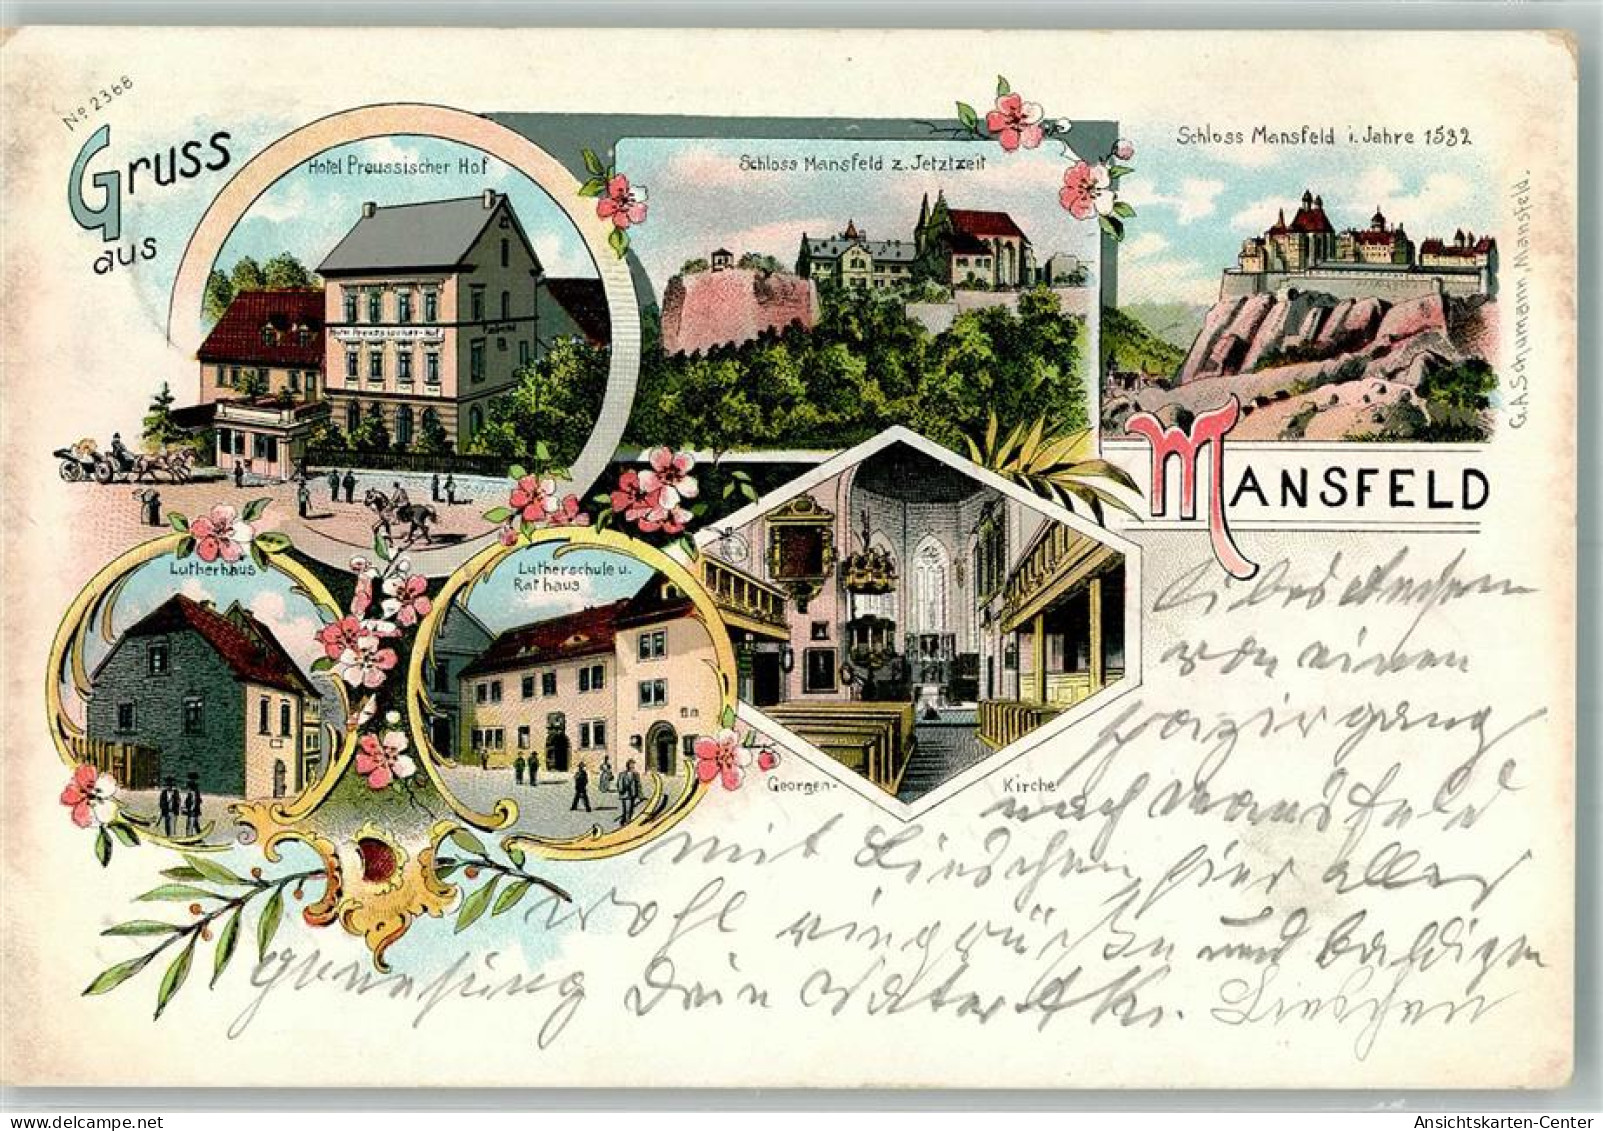 No 2368
Gruss
aus
Hotel Preussischer Hof
Hotel Preussischer-Hof
Schloss Mansfeld z. Jetztzeit
Schloss Mansfeld i. Jahre 1532
G.A.Schumann, Mansfeld.
MANSFELD
Lutherhaus
Lutherschule u.
Rathaus
Georgen-Kirche
Liebes
von einen
spaziergang
nach Mansfeld
mit Lieschen hier alles
wohl eingrüßen und baldigen
genesung Dein Vater
Lieschen
Ansichtskarten-Center